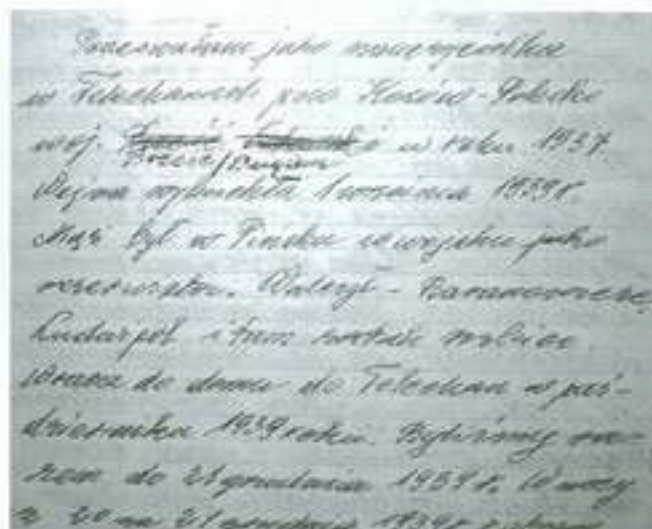 Pracowałam jako nauczycielka
w Telechanach pow. Kosów-Poleski
woj. w roku 1937.
Brześć/Bugiem
Wojna wybuchła 1 września 1939 r.
Mąż był w Pińsku w wojsku jako
Walczył - Baranowicze,
i tam został
Wraca do domu do Telechan w paź-
dzierniku 1939 roku. Byliśmy ra-
zem do 21 grudnia 1939 r. W nocy
z 20 na 21 grudnia 1939 r.